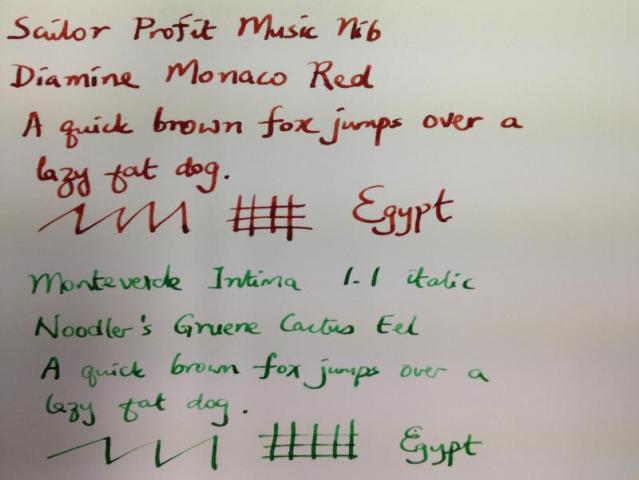 Sailor Profit Music Nib
Diamine Monaco Red
A quick brown fox jumps over a
lazy fat dog.
Egypt
Monteverde Intima 1.1 italic
Noodler's Gruene Cactus Eel
A quick brown fox jumps over a
lazy fat dog.
Egypt